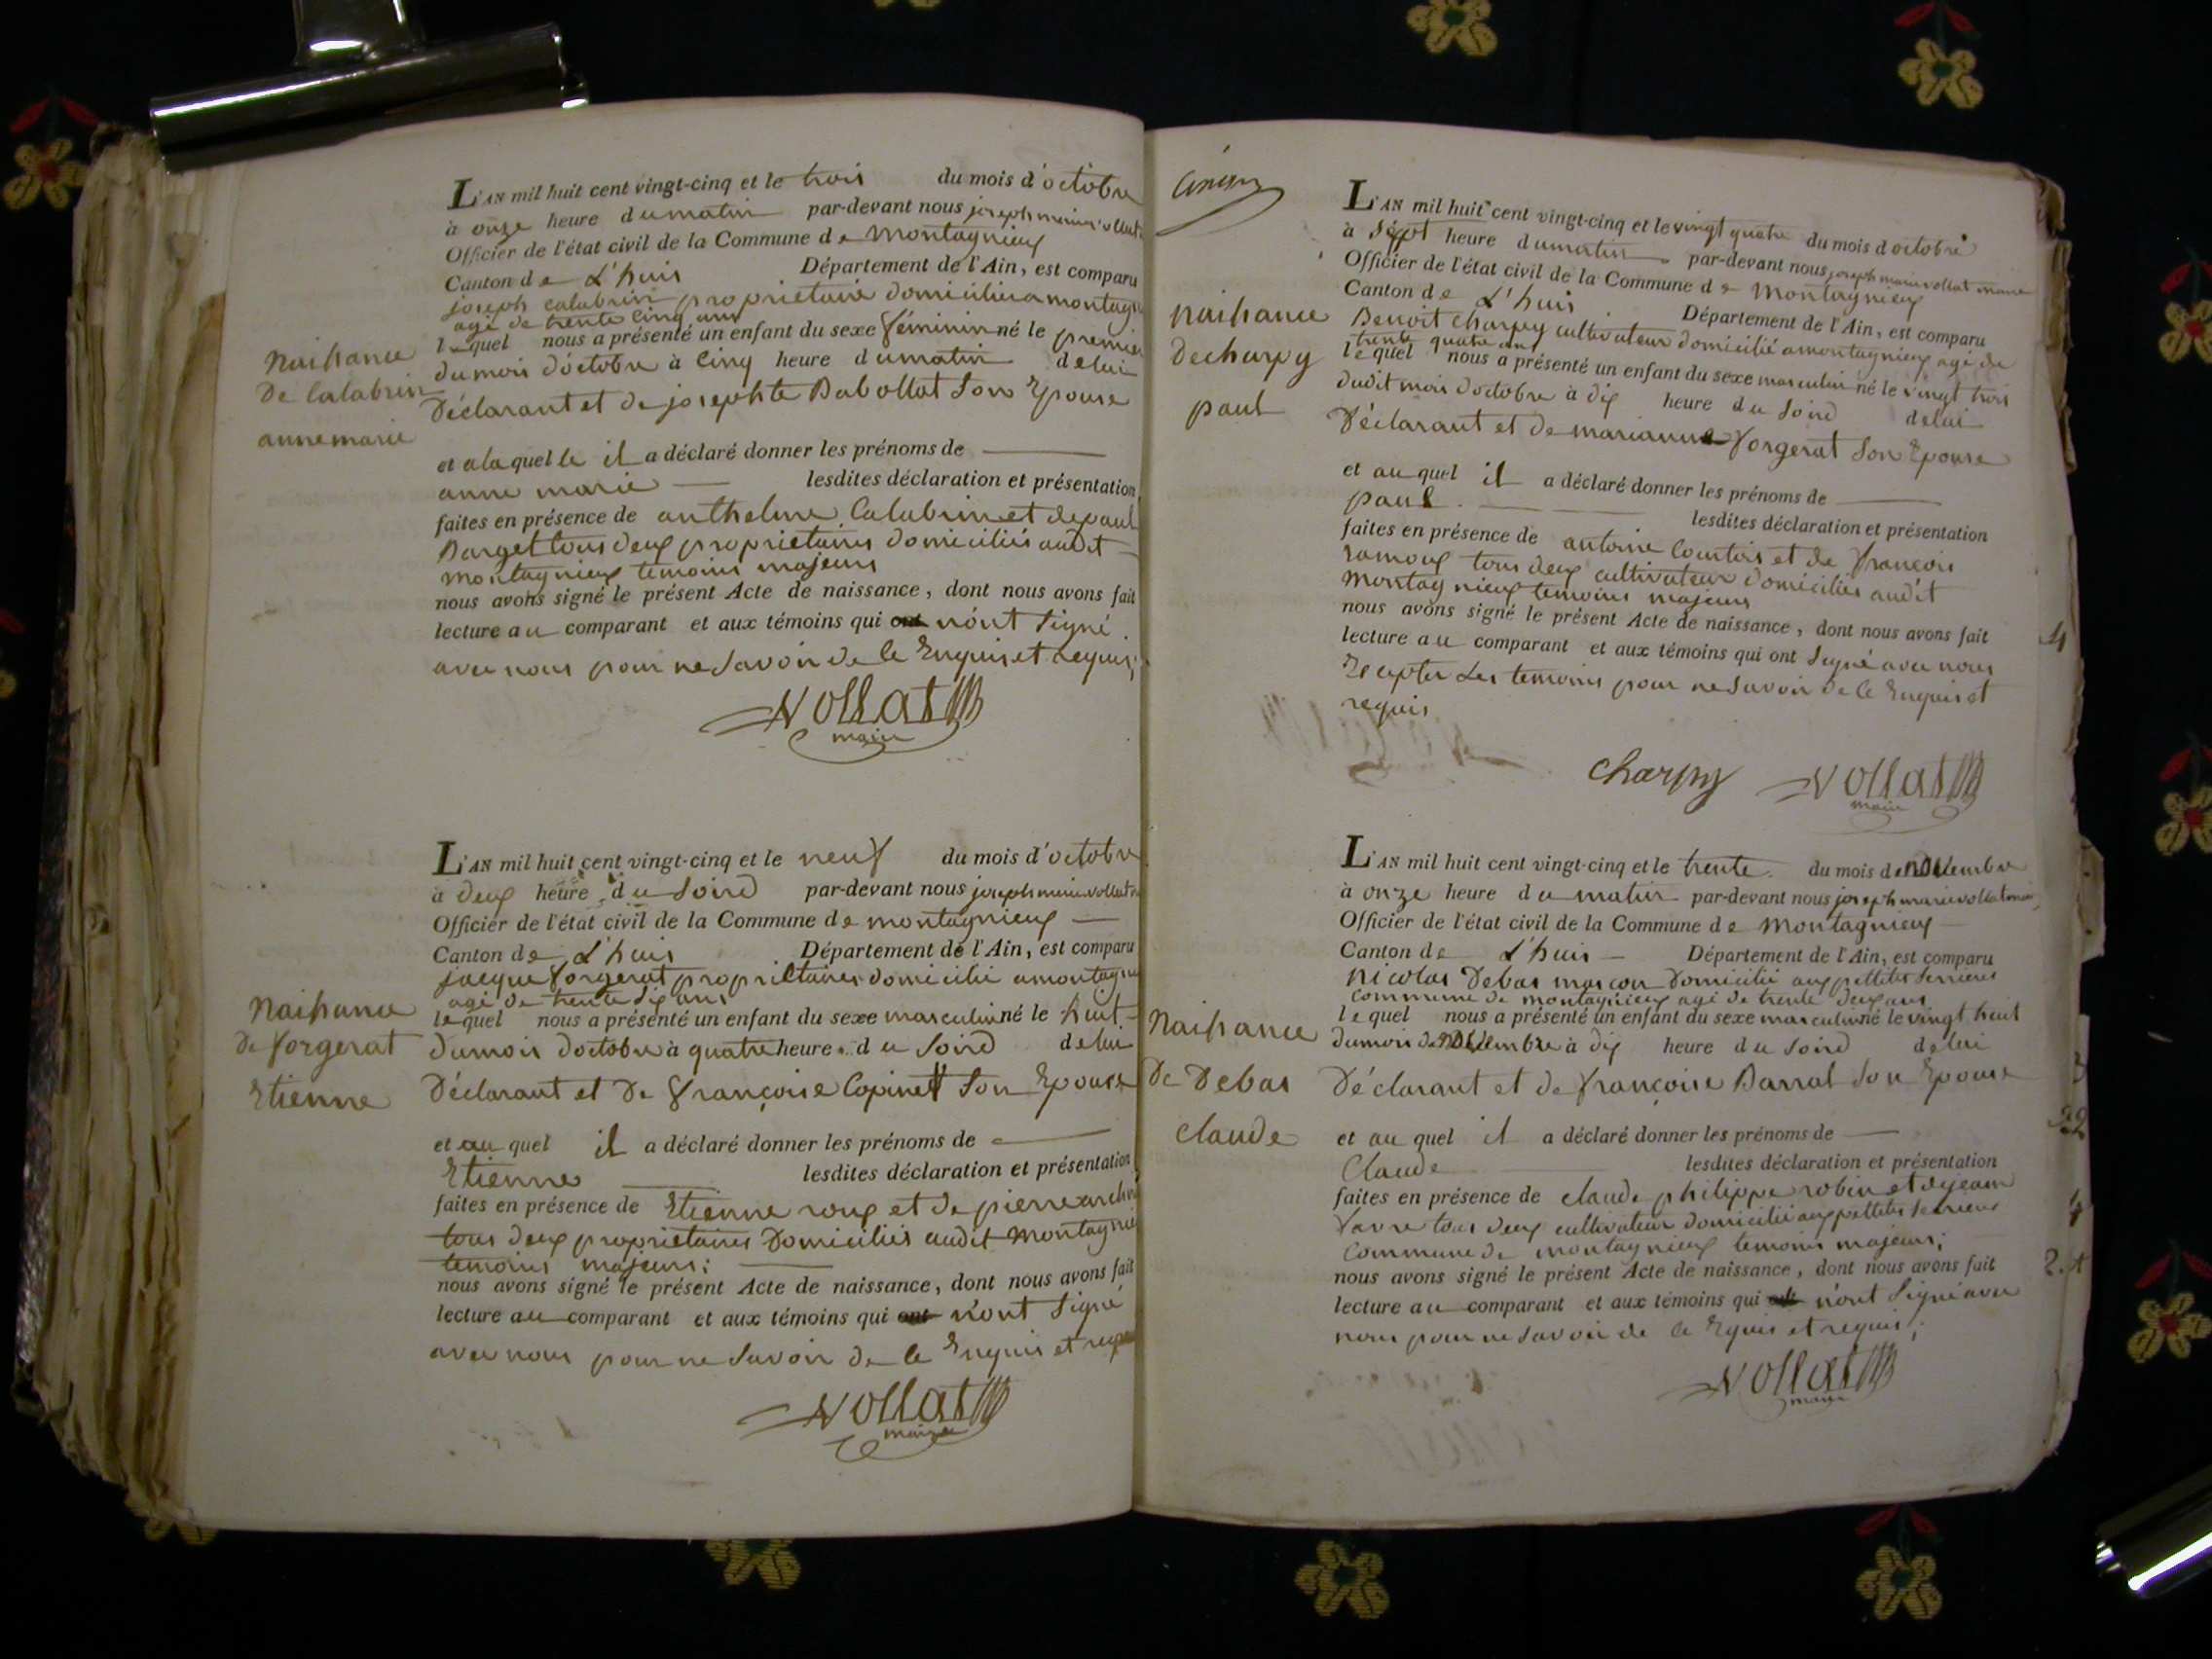 L'AN mil huit cent vingt-cinq et le trois du mois d'octobre
à onze heure du matin par-devant nous joseph marie vollat
Officier de l'état civil de la Commune de Montagnieux
Canton de L'huis Département de l'Ain, est comparu
joseph calabrin proprietaire domicilié a montagn
agé de trente cinq ans
lequel nous a présenté un enfant du sexe féminin né le premier
du mois d'octobre à cinq heure du matin de lui
Déclarant et de josephte Babollat son Epouse
Naissance
De Calabrin
anne marie
et a laquelle il a déclaré donner les prénoms de
anne marie lesdites déclaration et présentation
faites en présence de anthelme Calabrin et de paul
Barget tous deux proprietaires domiciliés audit
montagnieux temoins majeurs
nous avons signé le présent Acte de naissance, dont nous avons fait
lecture au comparant et aux témoins qui ont n'ont signé
avec nous pour ne savoir de ce Enquis et requis,
Vollat
maire
L'AN mil huit cent vingt-cinq et le neuf du mois d'octobre
à deux heure du soird par-devant nous joseph marie vollat
Officier de l'état civil de la Commune de montagnieux
Canton de L'huis Département de l'Ain, est comparu
jacque forgerat proprietaires domicilié a montagn
agé de trente six ans
lequel nous a présenté un enfant du sexe masculin né le huit
du mois d'octobre à quatre heure du soird de lui
Déclarant et De françoise Copinet son Epouse
Naissance
de forgerat
Etienne
et au quel il a déclaré donner les prénoms de
Etienne lesdites déclaration et présentation
faites en présence de Etienne roux et de pierre
tous deux proprietaires Domiciliés audit montagnie
temoins majeurs;
nous avons signé le présent Acte de naissance, dont nous avons fait
lecture au comparant et aux témoins qui ont n'ont signé
avec nous pour ne savoir de ce Enquis et requis
Vollat
maire
L'AN mil huit cent vingt-cinq et le vingt quatre du mois d'octobre
à sept heure du matin par-devant nous joseph marie vollat maire
Officier de l'état civil de la Commune de Montagnieux
Canton de L'huis Département de l'Ain, est comparu
Benoit charpy cultivateur domicilié a montagnieux agé de
trente quatre ans
lequel nous a présenté un enfant du sexe masculin né le vingt trois
dudit mois d'octobre à dix heure du soird de lui
Déclarant et de marianne forgerat son Epouse
Naissance
de charpy
paul
et au quel il a déclaré donner les prénoms de
paul lesdites déclaration et présentation
faites en présence de antoine Courtois et de françois
ramoux tous deux cultivateur domiciliés audit
montagnieux temoins majeurs
nous avons signé le présent Acte de naissance, dont nous avons fait
lecture au comparant et aux témoins qui ont signé avec nous
Excepter Les temoins pour ne savoir de ce Enquis et
requis
charpy Vollat
maire
L'AN mil huit cent vingt-cinq et le trente du mois de novembre
à onze heure du matin par-devant nous joseph marie vollat maire
Officier de l'état civil de la Commune de Montagnieux
Canton de L'huis Département de l'Ain, est comparu
nicolas Debas masçon Domicilié aux pettites serrieres
commune de montagnieux agé de trente deux ans
lequel nous a présenté un enfant du sexe masculin né le vingt huit
du mois de novembre à dix heure du soird de lui
Déclarant et de françoise Barral son Epouse
Naissance
De Debas
claude
et au quel il a déclaré donner les prénoms de
Claude lesdites déclaration et présentation
faites en présence de claude philippe robin et de jean
favre tous deux cultivateur domicilié aux pettites serrieres
Commune de montagnieux temoins majeurs;
nous avons signé le présent Acte de naissance, dont nous avons fait
lecture au comparant et aux témoins qui ont n'ont signé avec
nous pour ne savoir de ce Equis et requis;
Vollat
maire